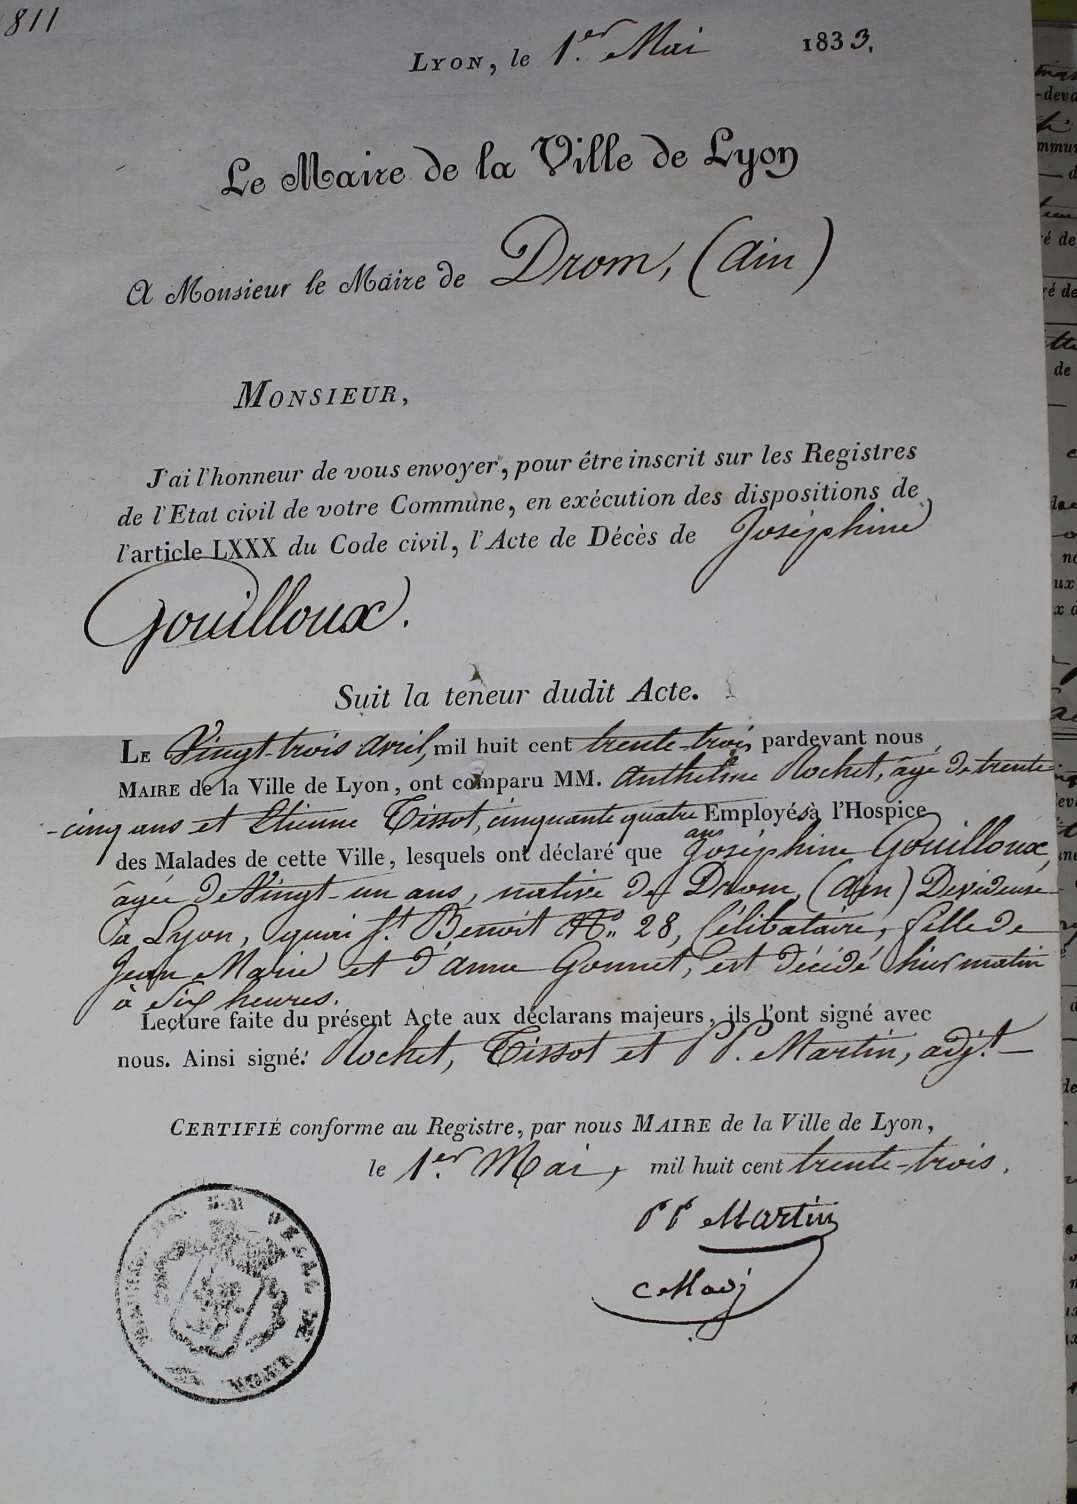 811
Lyon, le 1.er Mai 1833.
Le Maire de la Ville de Lyon
A Monsieur le Maire de Drom, (Ain)
Monsieur,
J'ai l'honneur de vous envoyer, pour être inscrit sur les Registres
de l'Etat civil de votre Commune, en exécution des dispositions de
l'article LXXX du Code civil, l'Acte de Décès de Joséphine
Gouilloux.
Suit la teneur dudit Acte.
Le Vingt-trois avril, mil huit cent trente-trois pardevant nous,
Maire de la Ville de Lyon, ont comparu MM. Anthelme Rochet, âgé de trente
-cinq ans et Etienne Tissot, cinquante quatre ans Employés à l'Hospice
des Malades de cette Ville, lesquels ont déclaré que Joséphine Gouilloux,
âgée de Vingt-un ans, native de Drom, (Ain) Devideuse
à Lyon, quai St. Benoit No. 28, Célibataire, fille de
Jean Marie et d'Anne Gonnet, est décédé hier matin
à Six heures.
Lecture faite du présent Acte aux déclarans majeurs, ils l'ont signé avec
nous. Ainsi signé: Rochet, Tissot et P P. Martin, adj.t
Certifié conforme au Registre, par nous Maire de la Ville de Lyon,
le 1.er Mai, mil huit cent trente-trois.
P P Martin